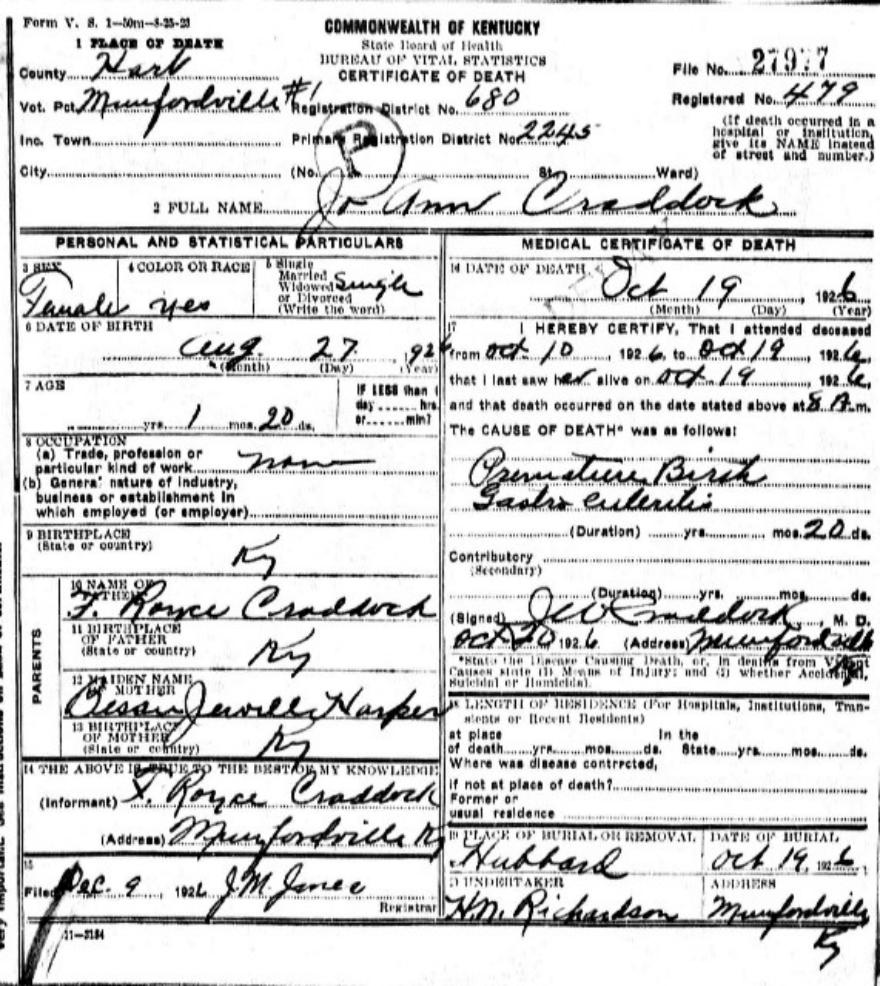 Form V. S. 1—50m—8-25-23
COMMONWEALTH OF KENTUCKY
State Board of Health
BUREAU OF VITAL STATISTICS
CERTIFICATE OF DEATH
1 PLACE OF DEATH
County Hart
Vot. Pct. Munfordville #1
Inc. Town
City
Registration District No. 680
Primary Registration District No. 2245
(No. St. Ward)
File No. 27977
Registered No. 479
(If death occurred in a
hospital or institution,
give its NAME instead
of street and number.)
P
2 FULL NAME Jo Ann Craddock
PERSONAL AND STATISTICAL PARTICULARS
3 SEX
Female
4 COLOR OR RACE
yes
5 Single
Married
Widowed
or Divorced
(Write the word)
Single
6 DATE OF BIRTH
Aug. 27, 1926
(Month) (Day) (Year)
7 AGE
yrs. 1 mos. 20 ds.
IF LESS than 1
day ...... hrs.
or ...... min?
8 OCCUPATION
(a) Trade, profession or
particular kind of work none
(b) General nature of industry,
business or establishment in
which employed (or employer)
9 BIRTHPLACE
(State or country)
Ky
PARENTS
10 NAME OF
FATHER
F. Royce Craddock
11 BIRTHPLACE
OF FATHER
(State or country)
Ky
12 MAIDEN NAME
OF MOTHER
Harper
13 BIRTHPLACE
OF MOTHER
(State or country)
Ky
14 THE ABOVE IS TRUE TO THE BEST OF MY KNOWLEDGE
(Informant) F. Royce Craddock
(Address) Munfordville Ky
15
Filed Dec. 9 1926 J.M. Jones
Registrar
11—3184
MEDICAL CERTIFICATE OF DEATH
16 DATE OF DEATH
Oct 19, 1926
(Month) (Day) (Year)
17 I HEREBY CERTIFY, That I attended deceased
from Oct 10, 1926, to Oct 19, 1926,
that I last saw her alive on Oct 19, 1926,
and that death occurred on the date stated above at 8 A.m.
The CAUSE OF DEATH* was as follows:
Premature Birth
Gastro enteritis
(Duration) yrs. mos. 20 ds.
Contributory
(Secondary)
(Duration) yrs. mos. ds.
(Signed) J W Craddock, M. D.
Oct 20, 1926 (Address) Munfordville
Ky
*State the Disease Causing Death, or, in deaths from Violent
Causes state (1) Means of Injury; and (2) whether Accidental,
Suicidal or Homicidal.
18 LENGTH OF RESIDENCE (For Hospitals, Institutions, Tran-
sients or Recent Residents)
at place In the
of death yrs. mos. ds. State yrs. mos. ds.
Where was disease contrrcted,
if not at place of death?
Former or
usual residence
19 PLACE OF BURIAL OR REMOVAL
Hubbard
DATE OF BURIAL
Oct 19, 1926
20 UNDERTAKER
H.N. Richardson
ADDRESS
Munfordville
Ky